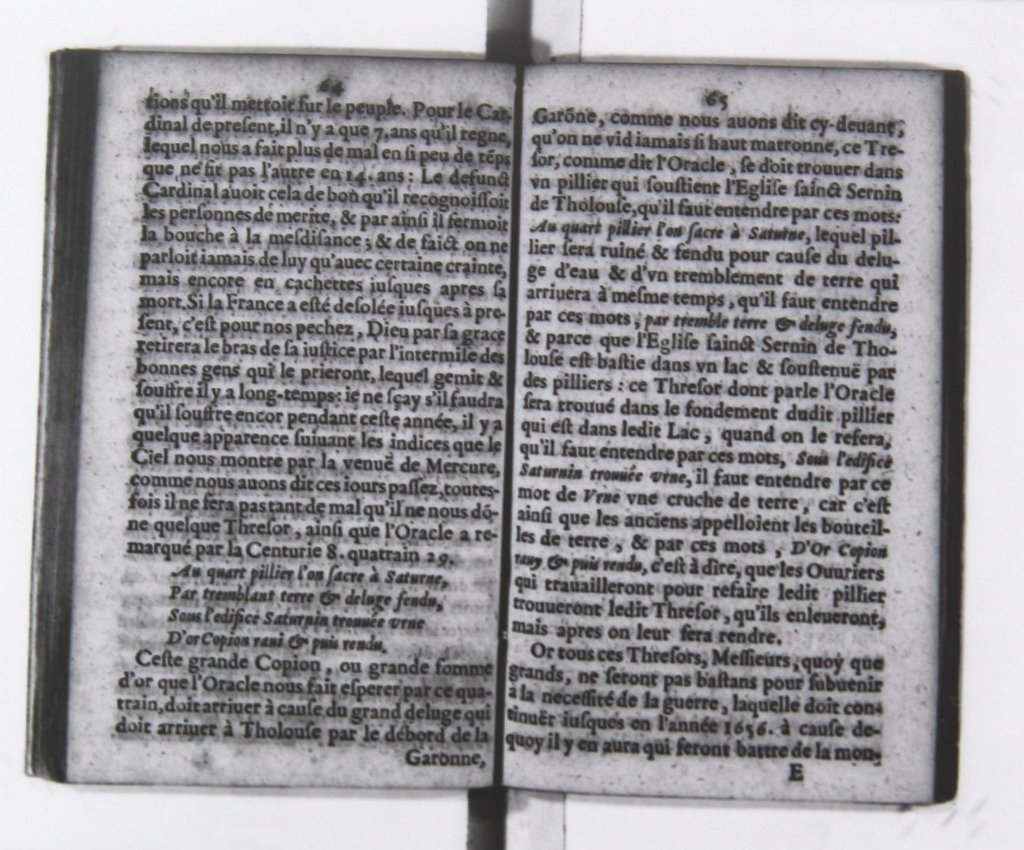 64
tions qu'il mettoit sur le peuple. Pour le Car-
dinal de present, il n'y a que 7. ans qu'il regne,
lequel nous a fait plus de mal en si peu de tẽps
que ne fit pas l'autre en 14. ans: Le defunct
Cardinal auoit cela de bon qu'il recognoissoit
les personnes de merite, & par ainsi il fermoit
la bouche à la mesdisance; & de faict on ne
parloit iamais de luy qu'auec certaine crainte,
mais encore en cachettes iusques apres sa
mort. Si la France a esté desolée iusques à pre-
sent, c'est pour nos pechez, Dieu par sa grace
retirera le bras de sa iustice par l'intermise des
bonnes gens qui le prieront, lequel gemit &
souffre il y a long-temps: ie ne sçay s'il faudra
qu'il souffre encor pendant ceste année, il y a
quelque apparence suiuant les indices que le
Ciel nous montre par la venuë de Mercure,
comme nous auons dit ces iours passez, toutes-
fois il ne fera pas tant de mal qu'il ne nous dõ-
ne quelque Thresor, ainsi que l'Oracle a re-
marqué par la Centurie 8. quatrain 29.
Au quart pillier l'on sacre à Saturne,
Par tremblant terre & deluge fendu,
Sous l'edifice Saturnin trouuée vrne
D'or Copion raui & puis rendu.
Ceste grande Copion, ou grande somme
d'or que l'Oracle nous fait esperer par ce qua-
train, doit arriuer à cause du grand deluge qui
doit arriuer à Tholouse par le débord de la
Garonne,
65
Garõne, comme nous auons dit cy-deuant,
qu'on ne vid iamais si haut matronne, ce Tre-
sor, comme dit l'Oracle, se doit trouuer dans
vn pillier qui soustient l'Eglise sainct Sernin
de Tholouse, qu'il faut entendre par ces mots:
Au quart pillier l'on sacre à Saturne, lequel pil-
lier sera ruiné & fendu pour cause du delu-
ge d'eau & d'vn tremblement de terre qui
arriuera à mesme temps, qu'il faut entendre
par ces mots, par tremble terre & deluge fendu,
& parce que l'Eglise sainct Sernin de Tho-
louse est bastie dans vn lac & soustenuë par
des pilliers: ce Thresor dont parle l'Oracle
sera trouué dans le fondement dudit pillier
qui est dans ledit Lac, quand on le refera,
qu'il faut entendre par ces mots, Sous l'edifice
Saturnin trouuée vrne, il faut entendre par ce
mot de Vrne vne cruche de terre, car c'est
ainsi que les anciens appelloient les bouteil-
les de terre, & par ces mots, D'Or Copion
rauy & puis rendu, c'est à dire, que les Ouuriers
qui trauailleront pour refaire ledit pillier
trouueront ledit Thresor, qu'ils enleueront,
mais apres on leur fera rendre.
Or tous ces Thresors, Messieurs, quoy que
grands, ne seront pas bastans pour subuenir
à la necessité de la guerre, laquelle doit con-
tinuër iusques en l'année 1656. à cause de-
quoy il y en aura qui feront battre de la mon-
E